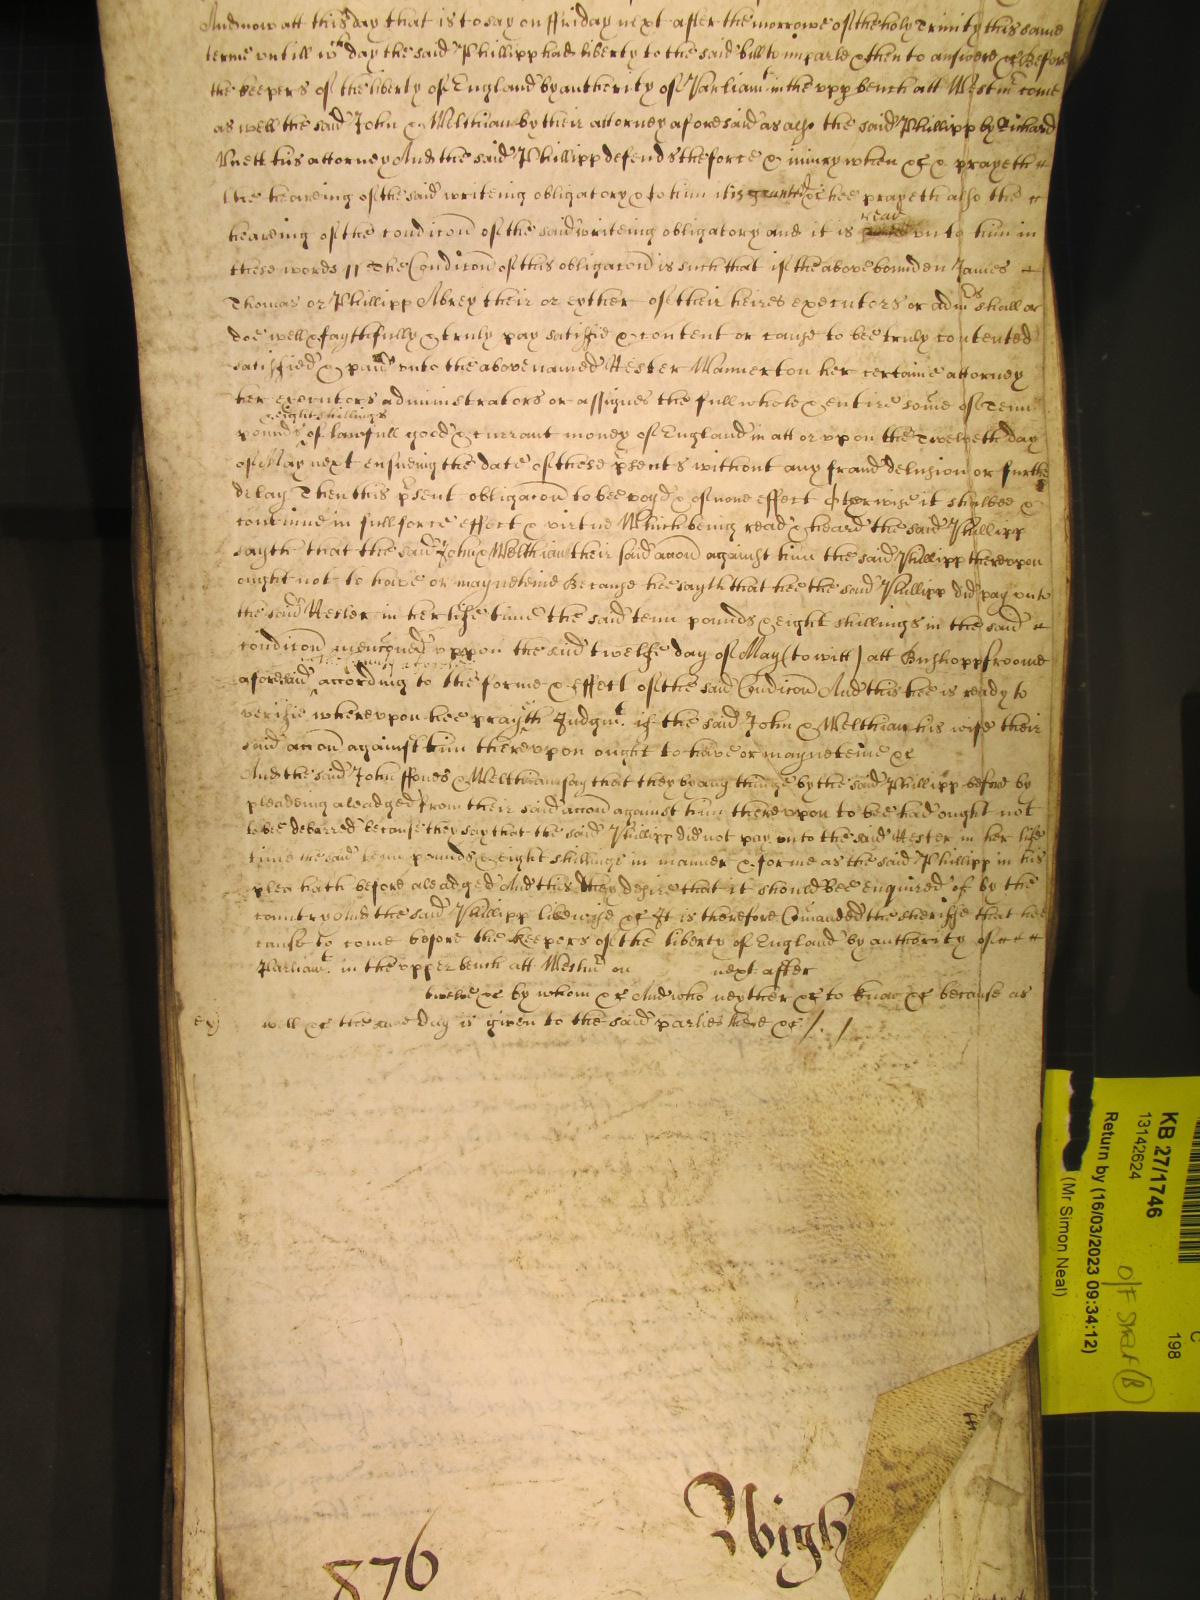 And now att this day that is to say on ffriday next after the morrowe of the holy Trinity this same
terme untill wch day the said Phillipp had liberty to the said bill to imparle & then to answere &c Before
the keepers of the liberty of England by authority of Parliamt in the upp bench att Westmr come
as well the said John & Welthian by their attorney aforesaid as also the said Phillipp by Richard
his attorney And the said Phillipp defends the force & iniury when &c & prayeth
the heareing of the said writeing obligatory & to him it is graunted &c hee prayeth also the
heareing of the condicon of the said writeing obligatory and it is read unto him in
these words // The Condicon of this obligacon is such that if the above bounden James
Thomas or Phillipp Abrey their or eyther of their heires executors or admrs shall or
doe well & faythfully & truly pay satisfie & content or cause to bee truly contented
satisfied & paid unto the above named Hester Mannerton her certaine attorney
her executors administrators or assignes the full whole & entire some of Tenn
pounds & eight shillings of lawfull good & currant money of England in att or upon the Twelveth day
of May next ensueing the date of these psents without any fraud delusion or further
delay Then this psent obligacon to bee voyd & of none effect Otherwise it shalbee &
continue in full force effect & virtue Which being read & heard the said Phillipp
sayth that the said John & Welthian their said accon against him the said Phillipp thereupon
ought not to have or mayneteine Because hee sayth that hee the said Phillipp did pay unto
the said Hester in her life time the said tenn pounds & eight shillings in the said
condicon menconed uppon the said twelfe day of May (to witt) att Bishopp froome
aforesaid in the county aforesaid according to the forme & effect of the said Condicon And this hee is ready to
verifie whereupon hee prayeth Judgmt. if the said John & Welthian his wife their
said accon against him thereupon ought to have or mayneteine &c
And the said John ffones & Welthian say that they by any thinge by the said Phillipp before by
pleadeing aleadged from their said accon against him thereupon to bee had ought not
to bee debarred because they say that the said Phillipp did not pay unto the said Hester in her life
time the said tenn pounds & eight shillings in manner & forme as the said Phillipp in his
plea hath before aleadged And this they desire that it should Bee enquired of by the
country And the said Phillipp likewise &c It is therefore Comanded the sheriffe that hee
cause to come before the keepers of the liberty of England by authority of
Parliamt. in the upper bench att Westmr on next after
twelve &c by whom &c And who neyther &c to know &c because as
well &c the same day is given to the said parties there &c /. /
876
KB 27/1746
13142624
Return by (16/03/2023 09:34:12)
(Mr Simon Neal)
C
198
O/F Shelf B